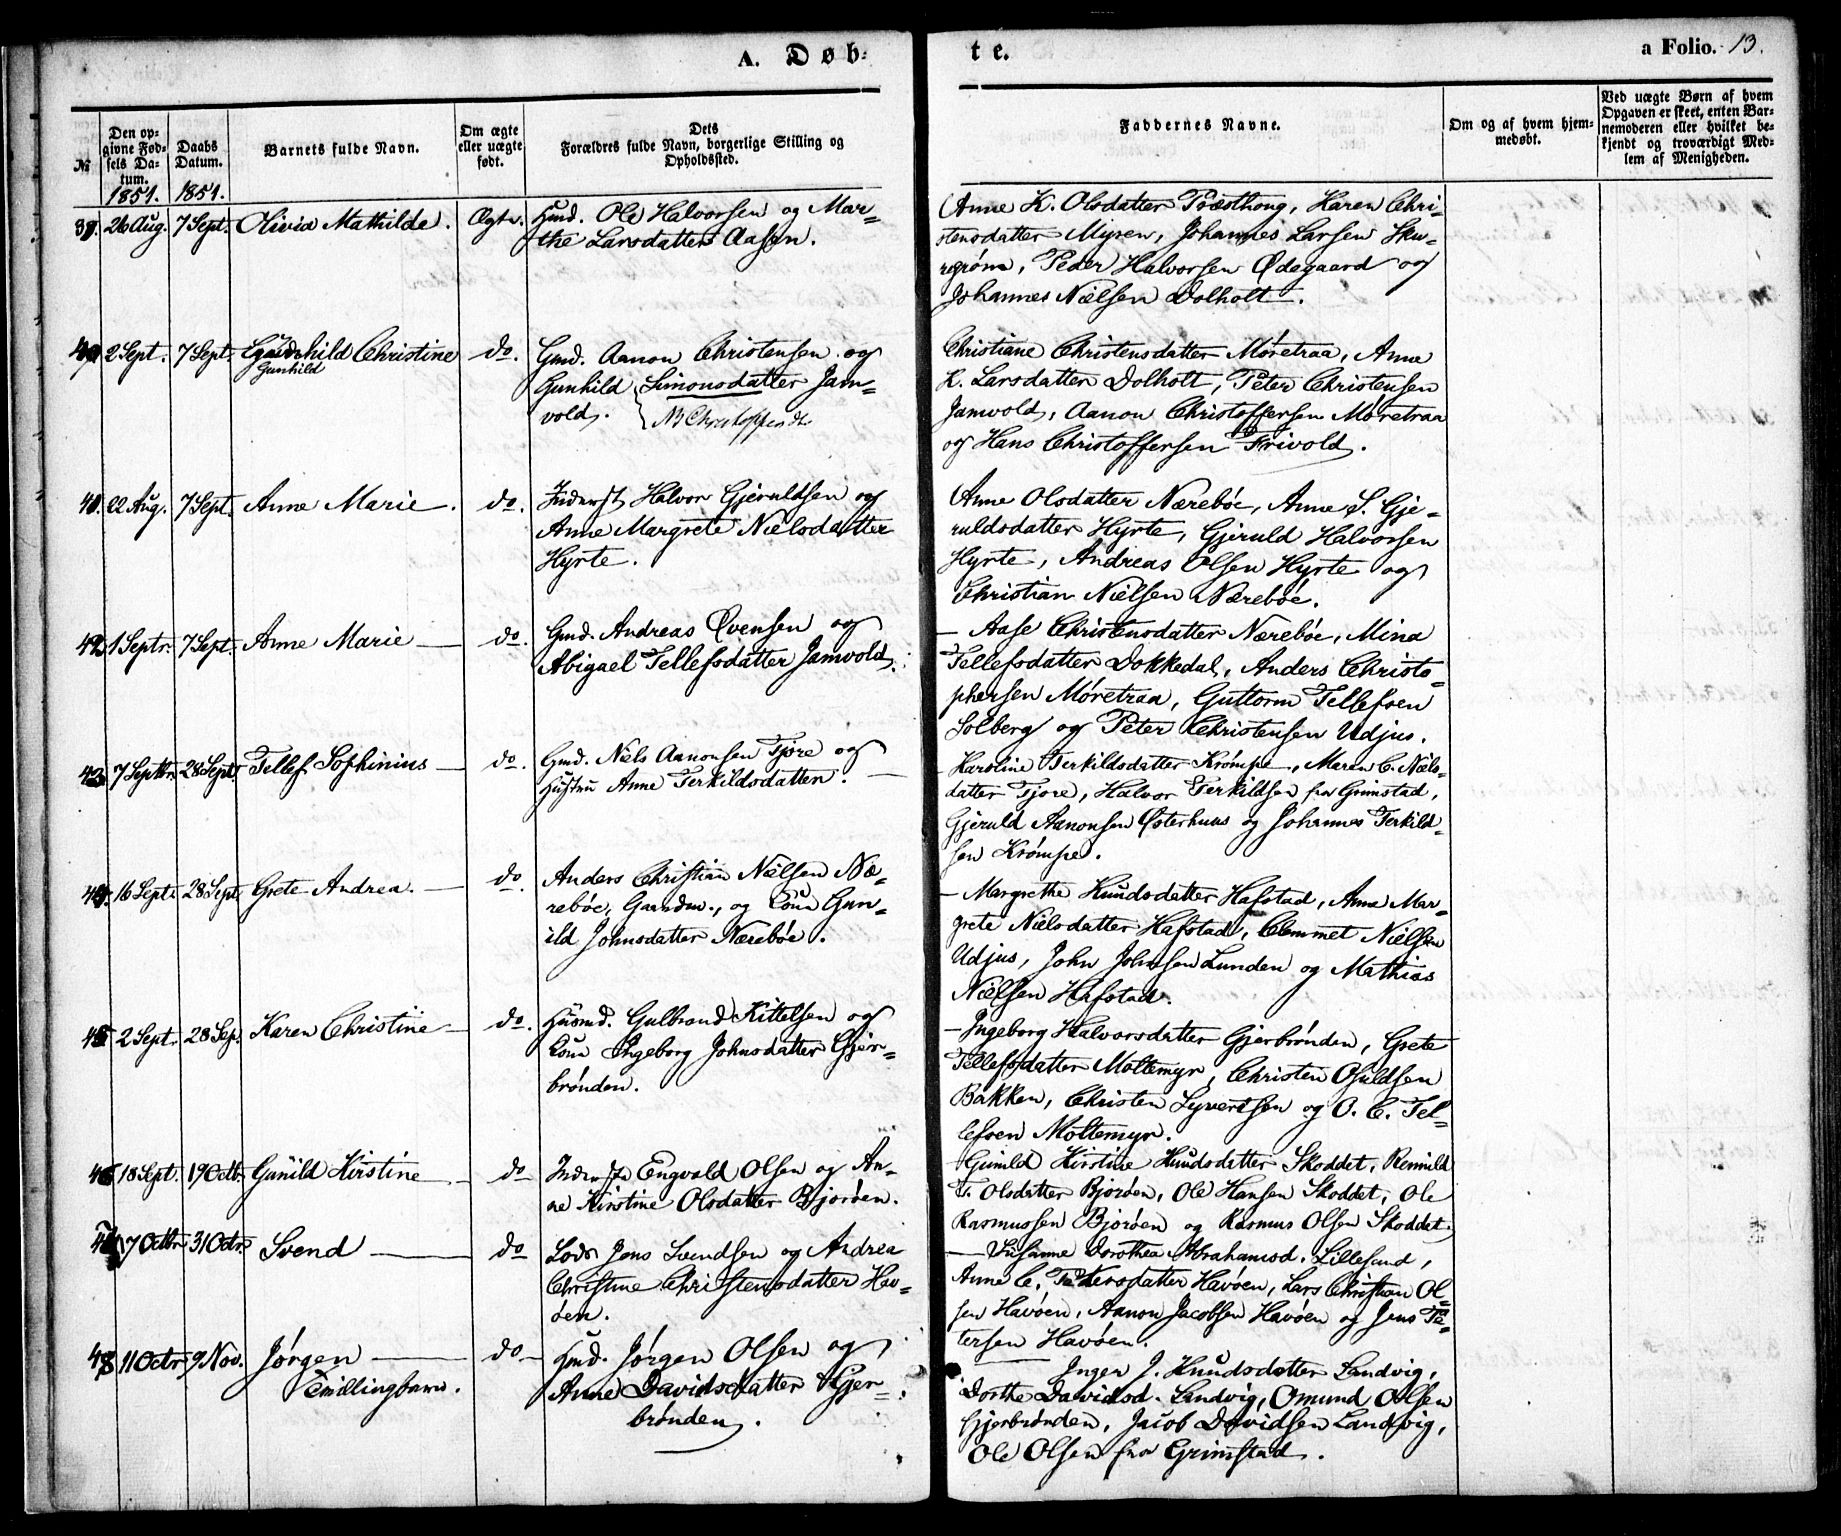 A. Døb-
te.
a Folio. 13.
No
Den op-
givne Fød-
sels Da-
tum.
1851.
Daabs
Datum.
1851.
Barnets fulde Navn.
Om ægte
eller uægte
født.
Dets
Forældres fulde Navn, borgerlige Stilling og
Opholdssted.
Faddernes Navne.
Om og af hvem hjem-
medøbt.
Ved uægte Børn af hvem
Opgaven er skeet, enten Bar-
nemoderen eller hvilket be-
kjendt og troværdigt Med-
lem af Menigheden.
39. 26 Aug. 7 Sept. Olivia Mathilde. Ægte. Huusmd. Ole Halvorsen og Mar-
the Larsdatter Aasen.
Anne K. Olsdatter, Karen Chri-
stensdatter Myren, Johannes Larsen Sku-
regrøm, Peder Halvorsen Ødegaard og
Johannes Nielsen Dolholt.
40. 2 Sept. 7 Sept. Gunhild Christine do. Gmd. Aanon Christensen og
Gunhild
Gunhild Simonsdatter Jam-
vold. NB Christophersdtr
Christiane Christensdatter Møretraa, Anne
K. Larsdatter Dolholt, Peter Christensen
Jamvold, Aanon Christoffersen Møretraa
og Hans Christoffersen Frivold.
41. 22 Aug. 7 Sept. Anne Marie. do. Inderst Halvor Gjeruldsen og
Anne Margrete Nielsdatter
Hyrte.
Anne Olsdatter Nærebøe, Anne S. Gje-
ruldsdatter Hyrte, Gjeruld Halvorsen
Hyrte, Andreas Olsen Hyrte og
Christian Nielsen Nærebøe.
42. 1 Septr. 7 Sept. Anne Marie — do. Gmd. Andreas Øvensen og
Abigael Tellefsdatter Jamvold.
— Aase Christensdatter Nærebøe, Mina
Tellefsdatter Dokkedal, Anders Christo-
phersen Møretraa, Guttorm Tellefsen
Solberg og Peter Christensen Udjus.
43. 7 Septbr. 28 Sept. Tellef Sophinius — do. Gmd. Niels Aanonsen Tjore og
Hustru Anne Terkildsdatter. —
Karoline Terkildsdatter Krømpe, Maren C. Niels-
datter Tjore, Halvor Terkildsen fra Grimstad,
Gjeruld Aanonsen Østerhuus og Johannes Terkild-
sen Krømpe.
44. 16 Sept. 28 Sept. Grete Andrea. — do. Anders Christian Nielsen Næ-
rebøe, Gaardm., og Kone Gun-
ild Johnsdatter Nærebøe.
— Margrethe Knudsdatter Hafstad, Anne Mar-
grete Nielsdatter Hafstad, Clemmet Nielsen
Udjus, John Johnsen Lunden og Mathias
Nielsen Hafstad.
45 2 Sept. 28 Sep. Karen Christine — do. Huusmd. Gulbrand Kittelsen og
Kone Ingeborg Johnsdatter Gjer-
brønden.
— Ingeborg Halvorsdatter Gjerbrønden, Grete
Tellefsdatter Moltemyr, Christen Osuldsen
Bakken, Christen Syvertsen og O. C. Tel-
lefsen Moltemyr.
46 18 Sept. 19 Octb. Gunild Kirstine — do — Inderste Engvald Olsen og An-
ne Kirstine Olsdatter Bjorøen.
— Gunild Kirstine Knudsdatter Skoddet, Remild
T. Olsdatter Bjorøen, Ole Hansen Skoddet, Ole
Rasmussen Bjorøen og Rasmus Olsen Skoddet.
47 7 Octbr 31 Octr. Svend — do Lods Jens Svendsen og Andrea
Christine Christensdatter Hav-
øen.
— Susanne Dorothea Abrahamsd. Lillesand,
Anne C. Pettersdatter Havøen, Lars Christian Ol-
sen Havøen, Aanon Jacobsen Havøen og Jens Pe-
tersen Havøen.
48 11 Octr 9 Nov. Jørgen — do — Hmd. Jørgen Olsen og
Tvillingbarn. Anne Davidsdatter Gjer-
brønden.
Inger J. Knudsdatter Landvig,
Dorthe Davidsd. Landvig, Omund Olsen
Gjerbrønden, Jacob Davidsen Landvig,
Ole Olsen fra Grimstad.